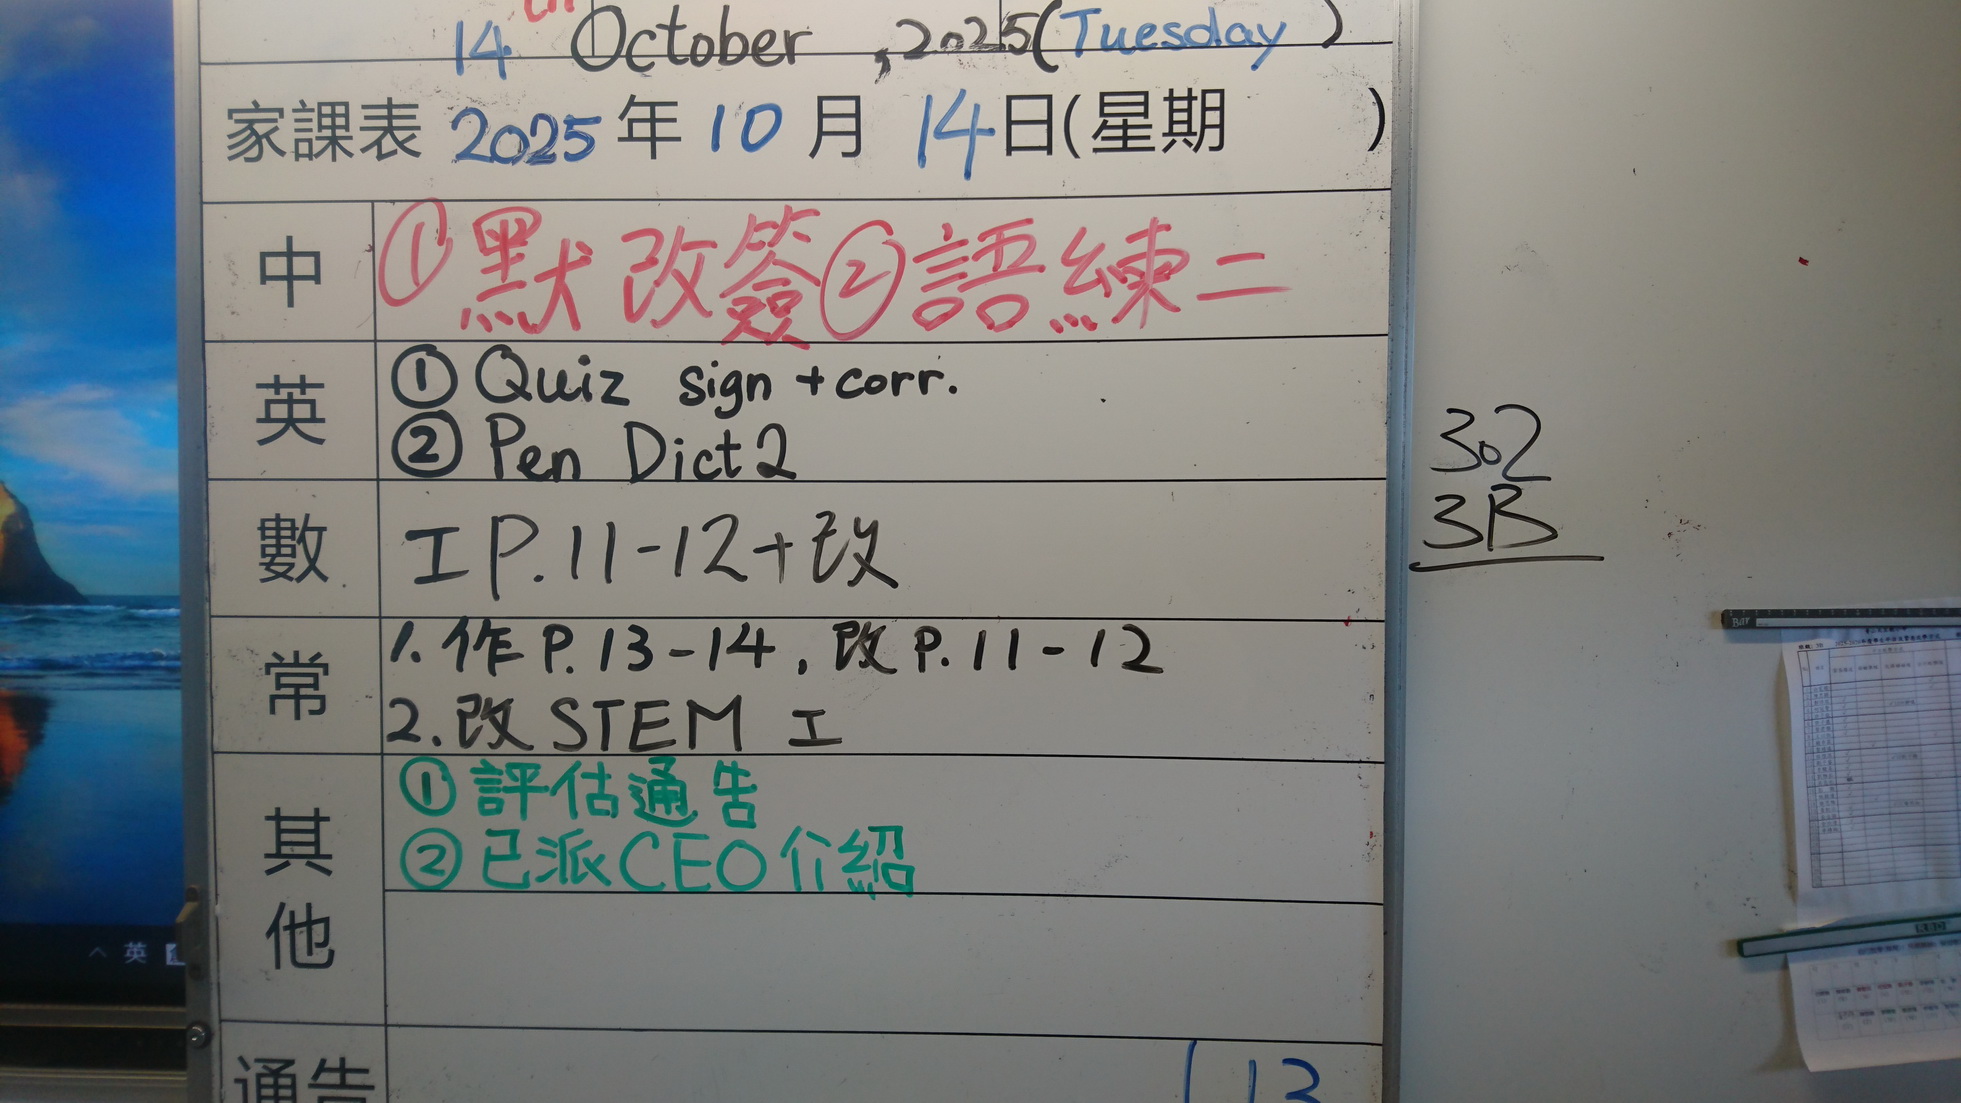 14th October , 2025(Tuesday)
家課表 2025年 10月 14日(星期 )
中 ①默改簽②語練二
英 ①Quiz sign +corr.
②Pen Dict 2
數 工P.11-12+改
常 1.作P.13-14,改P.11-12
2.改STEM 工
其他 ①評估通告
②已派CEO介紹
通告 (13
302
3B
Bar
英